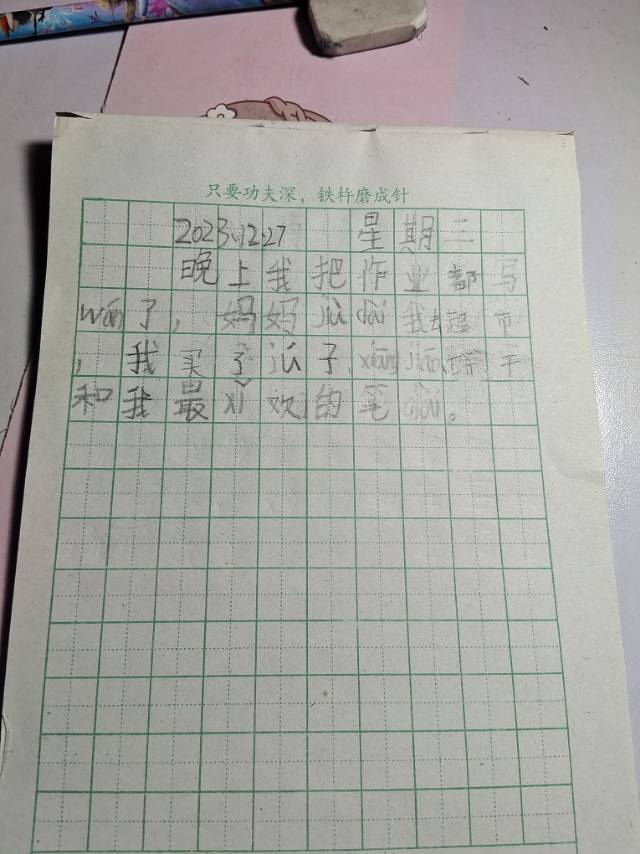 只要功夫深，铁杵磨成针
2023.12.27 星期三
晚上我把作业都写
wán了，妈妈jiù dài我去超市
，我买了jú子、xiāng jiāo、饼干
和我最xǐ欢的笔dài。